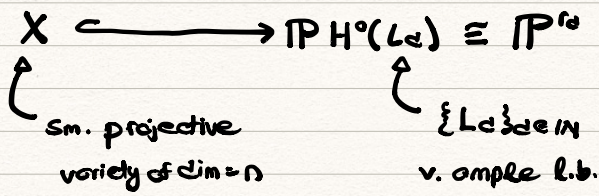 X ↪ ℙ H⁰(L_d) ≡ ℙ^{r_d}
sm. projective
variety of dim = n
{L_d}_{d∈ℕ}
v. ample l.b.